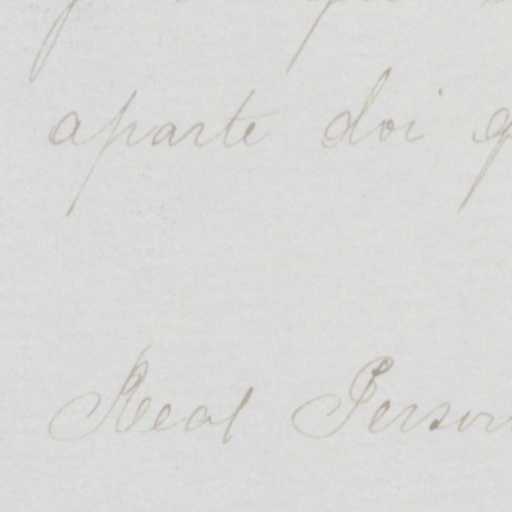 aparte doi
Real Person